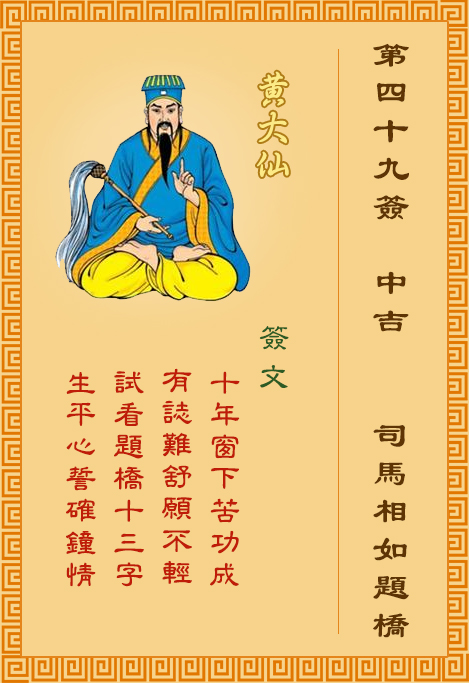 第四十九簽 中吉 司馬相如題橋
黃大仙
簽文
十年窗下苦功成
有誌難舒願不輕
試看題橋十三字
生平心誓確鐘情